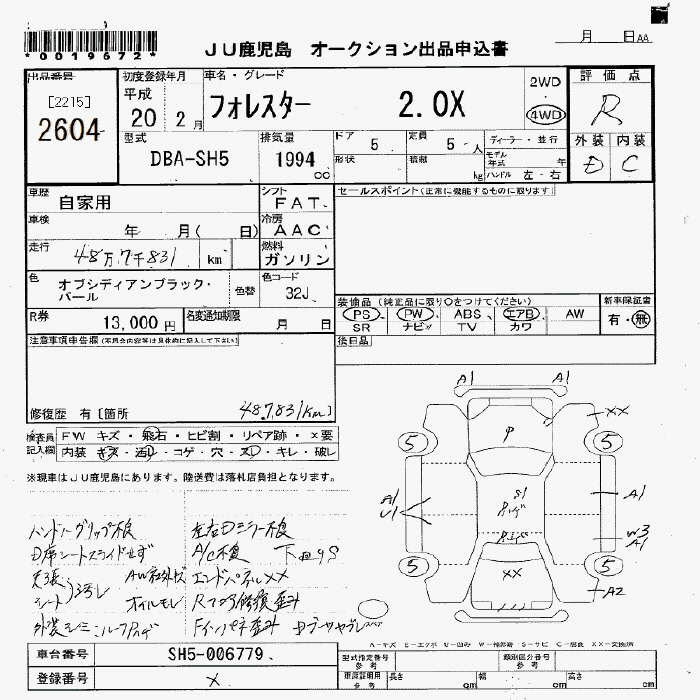 *0019672*
JU鹿児島 オークション出品申込書
月 日 AA
出品番号
[2215]
2604
初度登録年月
平成
20 2月
車名・グレード
フォレスター 2.0X
2WD
4WD
評価点
R
外装 内装
D C
型式
DBA-SH5
排気量
1994 cc
ドア 5
形状
定員 5 人
積載 kg
ディーラー・並行
モデル年式 年
ハンドル 左・右
車歴
自家用
シフト
FAT
セールスポイント(正常に機能するものに限ります)
車検
年 月( 日)
冷房
AAC
走行
48万7千831 km
燃料
ガソリン
色
オブシディアンブラック・パール
色替
色コード
32J
装備品(純正品に限り○をつけてください)
PS PW ABS エアB AW
SR ナビ TV カワ
新車保証書
有・無
R券
13,000円
名変通知期限
月 日
後日品
注意事項申告欄
修復歴 有[箇所
487,831km]
検査員記入欄
FW キズ・飛石・ヒビ割・リペア跡・x要
内装・キズ・汚レ・コゲ・穴・スレ・キレ・破レ
※現車はJU鹿児島にあります。陸送費は落札店負担となります。
ハンドルグリップ不良
左右Dミラー不良
A/C不良
エンドパネルXX
オイルモレ
A1 A1
XX
5 5
P
A1
U1
S1
A1
W3
A1
5 5
XX
A2
A-キズ E-エクボ U-凹み W-補修跡 S-サビ C-腐食 XX-交換済
車台番号
SH5-006779
登録番号
×
型式指定番号
参考
類別区分番号
参考
車庫証明用
参考
長さ cm
幅 cm
高さ cm